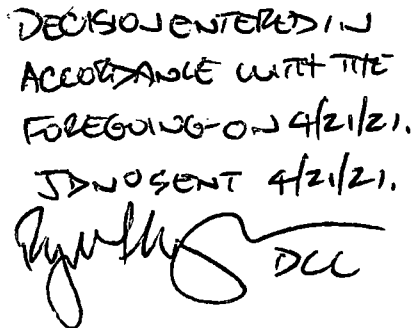 DECISION ENTERED IN
ACCORDANCE WITH THE
FOREGOING - ON 4/21/21.
JDNO SENT 4/21/21.
DCC